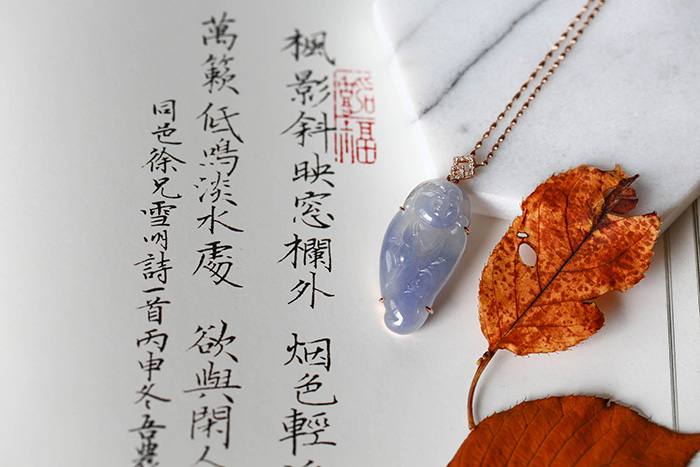 楓影斜映窓欄外 烟色輕
萬籟低鳴淡水處 欲與閑人
同邑徐兄雪明詩一首丙申冬吾